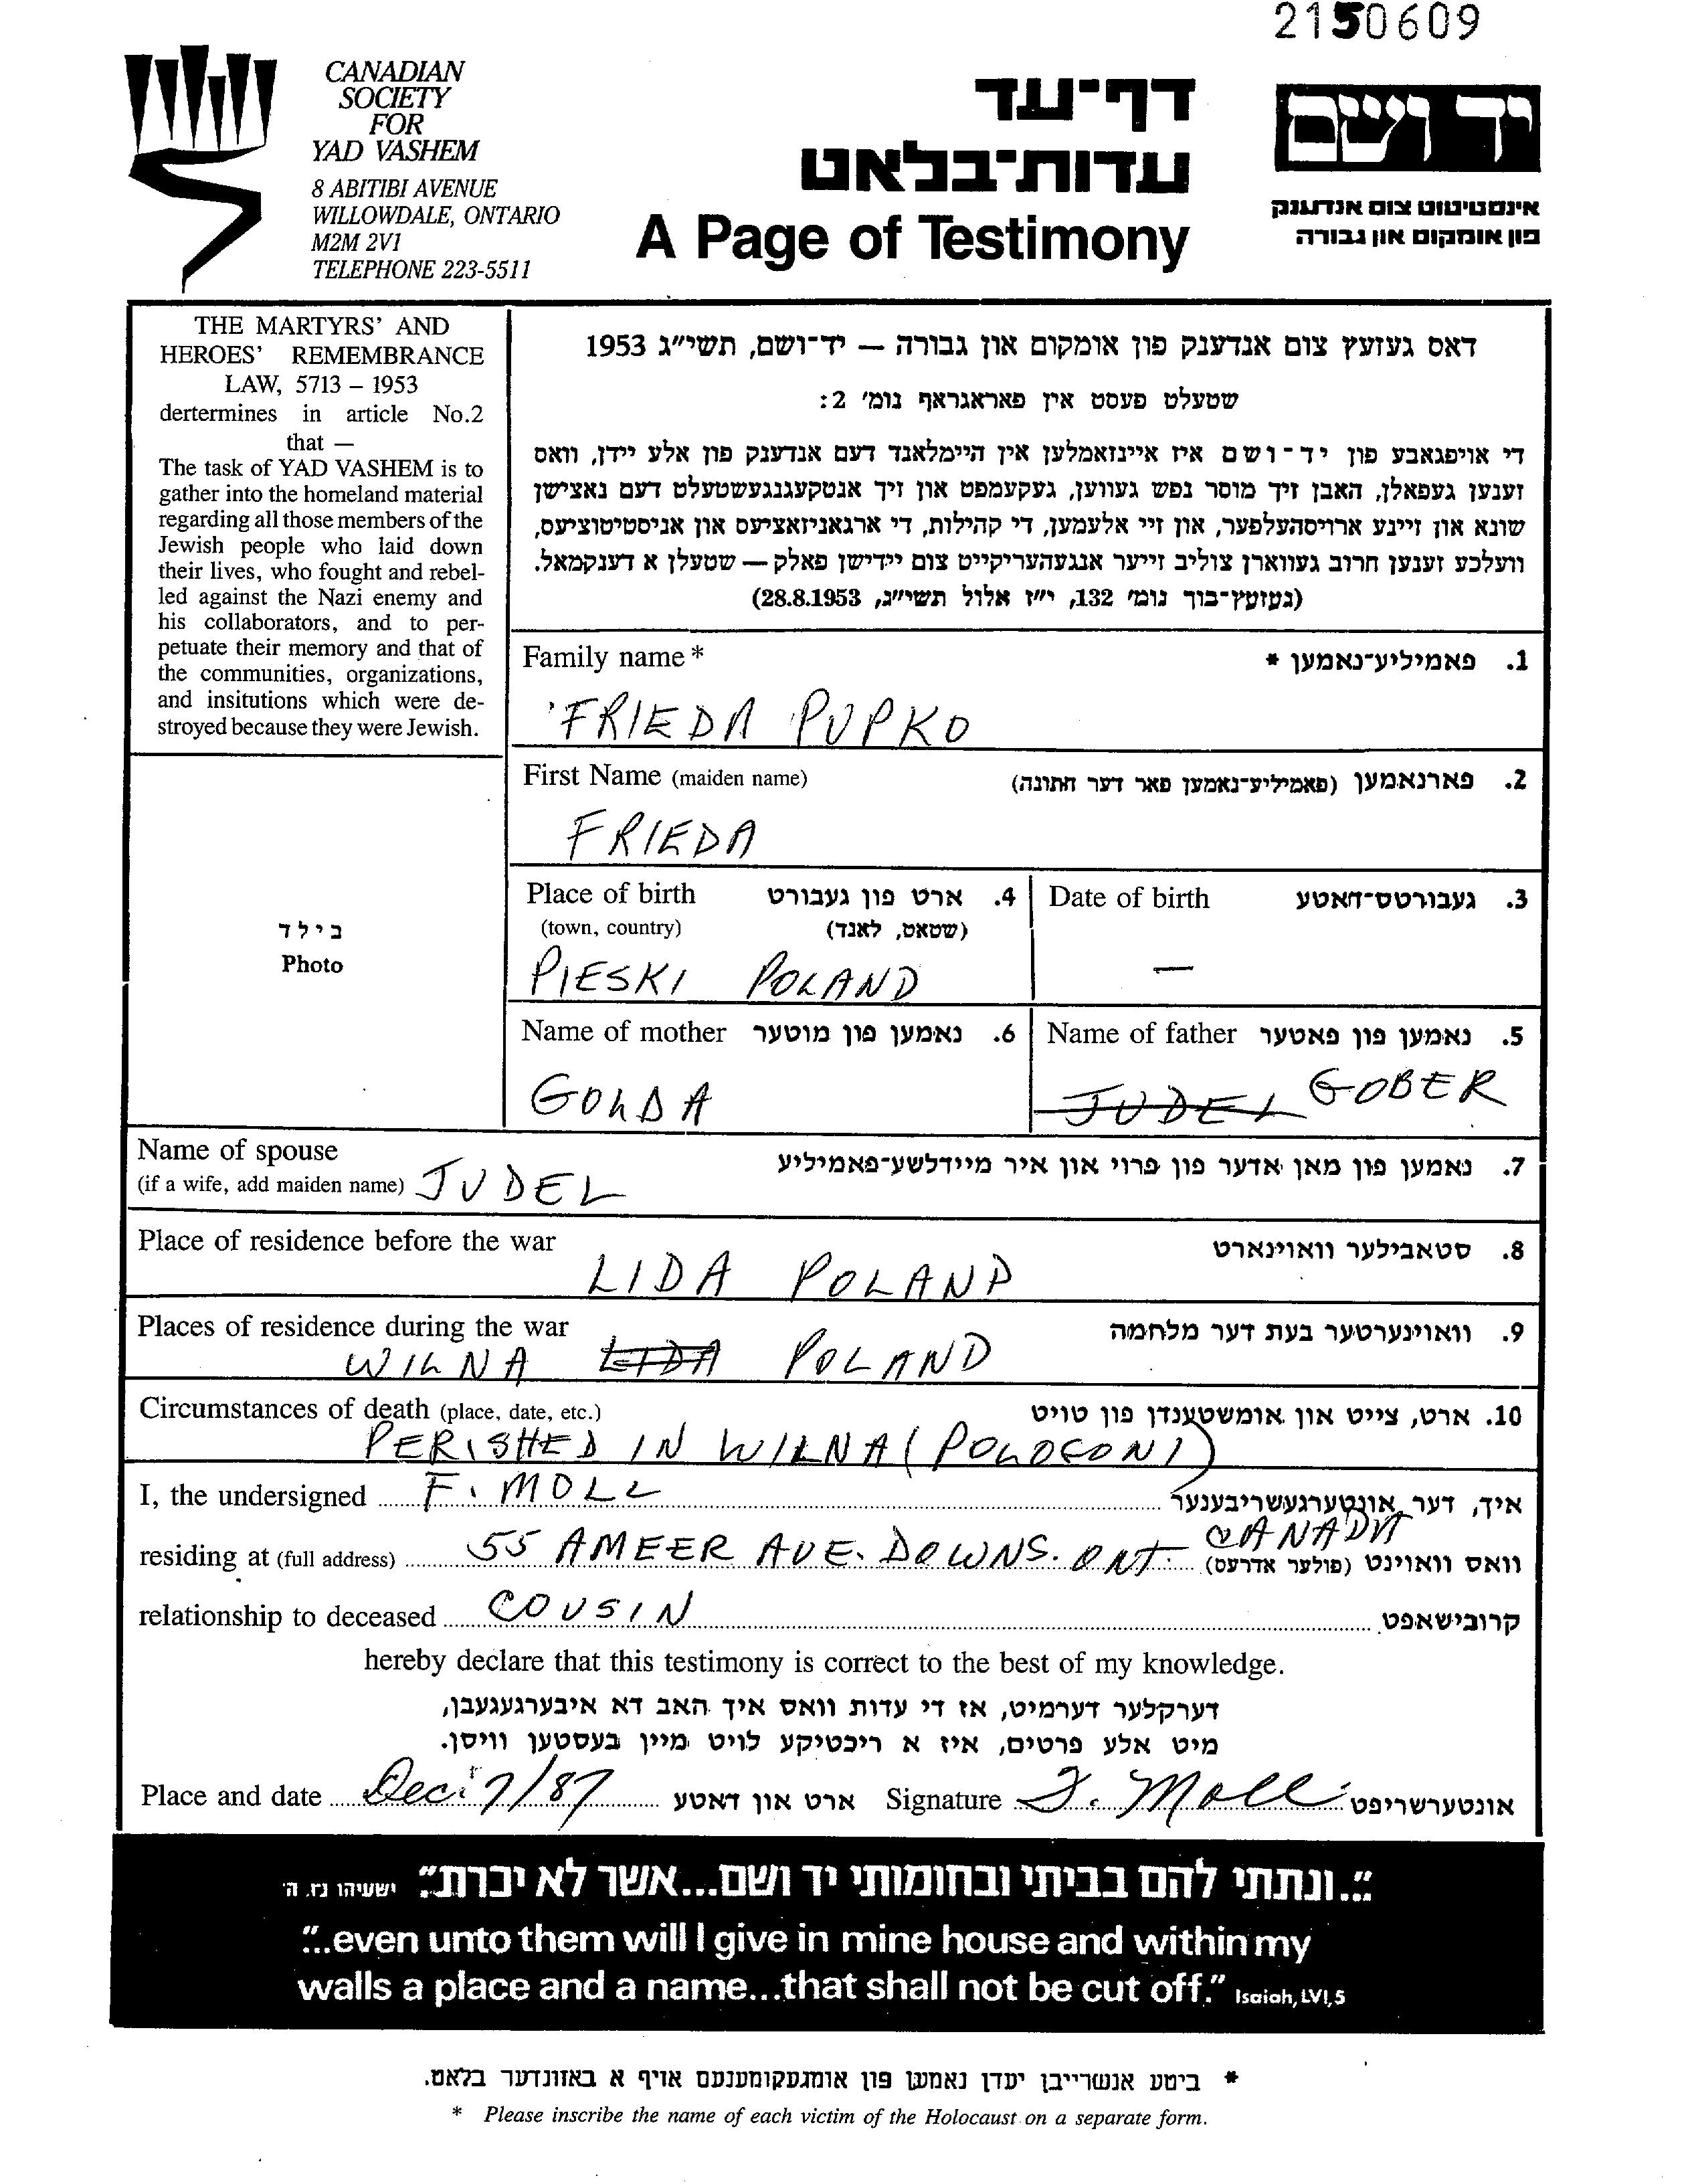 2150609
CANADIAN
SOCIETY
FOR
YAD VASHEM
8 ABITIBI AVENUE
WILLOWDALE, ONTARIO
M2M 2V1
TELEPHONE 223-5511
דף־עד
עדות־בלאט
A Page of Testimony
יד ושם
אינסטיטוט צום אנדענק
פון אומקום און גבורה
THE MARTYRS' AND
HEROES' REMEMBRANCE
LAW, 5713 – 1953
dertermines in article No.2
that —
The task of YAD VASHEM is to
gather into the homeland material
regarding all those members of the
Jewish people who laid down
their lives, who fought and rebel-
led against the Nazi enemy and
his collaborators, and to per-
petuate their memory and that of
the communities, organizations,
and insitutions which were de-
stroyed because they were Jewish.
דאס געזעץ צום אנדענק פון אומקום און גבורה — יד־ושם, תשי"ג 1953
שטעלט פעסט אין פאראגראף נומ' 2:
די אויפגאבע פון יד־ושם איז איינזאמלען אין היימלאנד דעם אנדענק פון אלע יידן, וואס
זענען געפאלן, האבן זיך מוסר נפש געווען, געקעמפט און זיך אנטקעגנגעשטעלט דעם נאצישן
שונא און זיינע ארויסהעלפער, און זיי אלעמען, די קהילות, די ארגאניזאציעס און אניסטיטוציעס,
וועלכע זענען חרוב געווארן צוליב זייער אנגעהעריקייט צום יידישן פאלק — שטעלן א דענקמאל.
(געזעץ־בוך נומ' 132, י"ז אלול תשי"ג, 28.8.1953)
Family name * פאמיליע־נאמען * .1
FRIEDA PUPKO
First Name (maiden name) פארנאמען (פאמיליע־נאמען פאר דער חתונה) .2
FRIEDA
בילד
Photo
Place of birth ארט פון געבורט .4
(town, country) (שטאט, לאנד)
PIESKI POLAND
Date of birth געבורטס־דאטע .3
—
Name of mother נאמען פון מוטער .6
GOLDA
Name of father נאמען פון פאטער .5
JUDEL GOBER
Name of spouse נאמען פון מאן אדער פון פרוי און איר מיידלשע־פאמיליע .7
(if a wife, add maiden name) JUDEL
Place of residence before the war סטאבילער וואוינארט .8
LIDA POLAND
Places of residence during the war וואוינערטער בעת דער מלחמה .9
WILNA LIDA POLAND
Circumstances of death (place, date, etc.) ארט, צייט און אומשטענדן פון טויט .10
PERISHED IN WILNA (
I, the undersigned F. MOLL איך, דער אונטערגעשריבענער
residing at (full address) 55 AMEER AVE. DOWNS. ONT. CANADA וואס וואוינט (פולער אדרעס)
relationship to deceased COUSIN קרובישאפט
hereby declare that this testimony is correct to the best of my knowledge.
דערקלער דערמיט, אז די עדות וואס איך האב דא איבערגעגעבן,
מיט אלע פרטים, איז א ריכטיקע לויט מיין בעסטען וויסן.
Place and date Dec. 7/87 ארט און דאטע Signature F. Moll אונטערשריפט
"...ונתתי להם בביתי ובחומותי יד ושם...אשר לא יכרת" ישעיהו נז, ה'
"...even unto them will I give in mine house and within my
walls a place and a name...that shall not be cut off." Isaiah, LVI, 5
* ביטע אנשרייבן יעדן נאמען פון אומגעקומענעם אויף א באזונדער בלאט.
* Please inscribe the name of each victim of the Holocaust on a separate form.